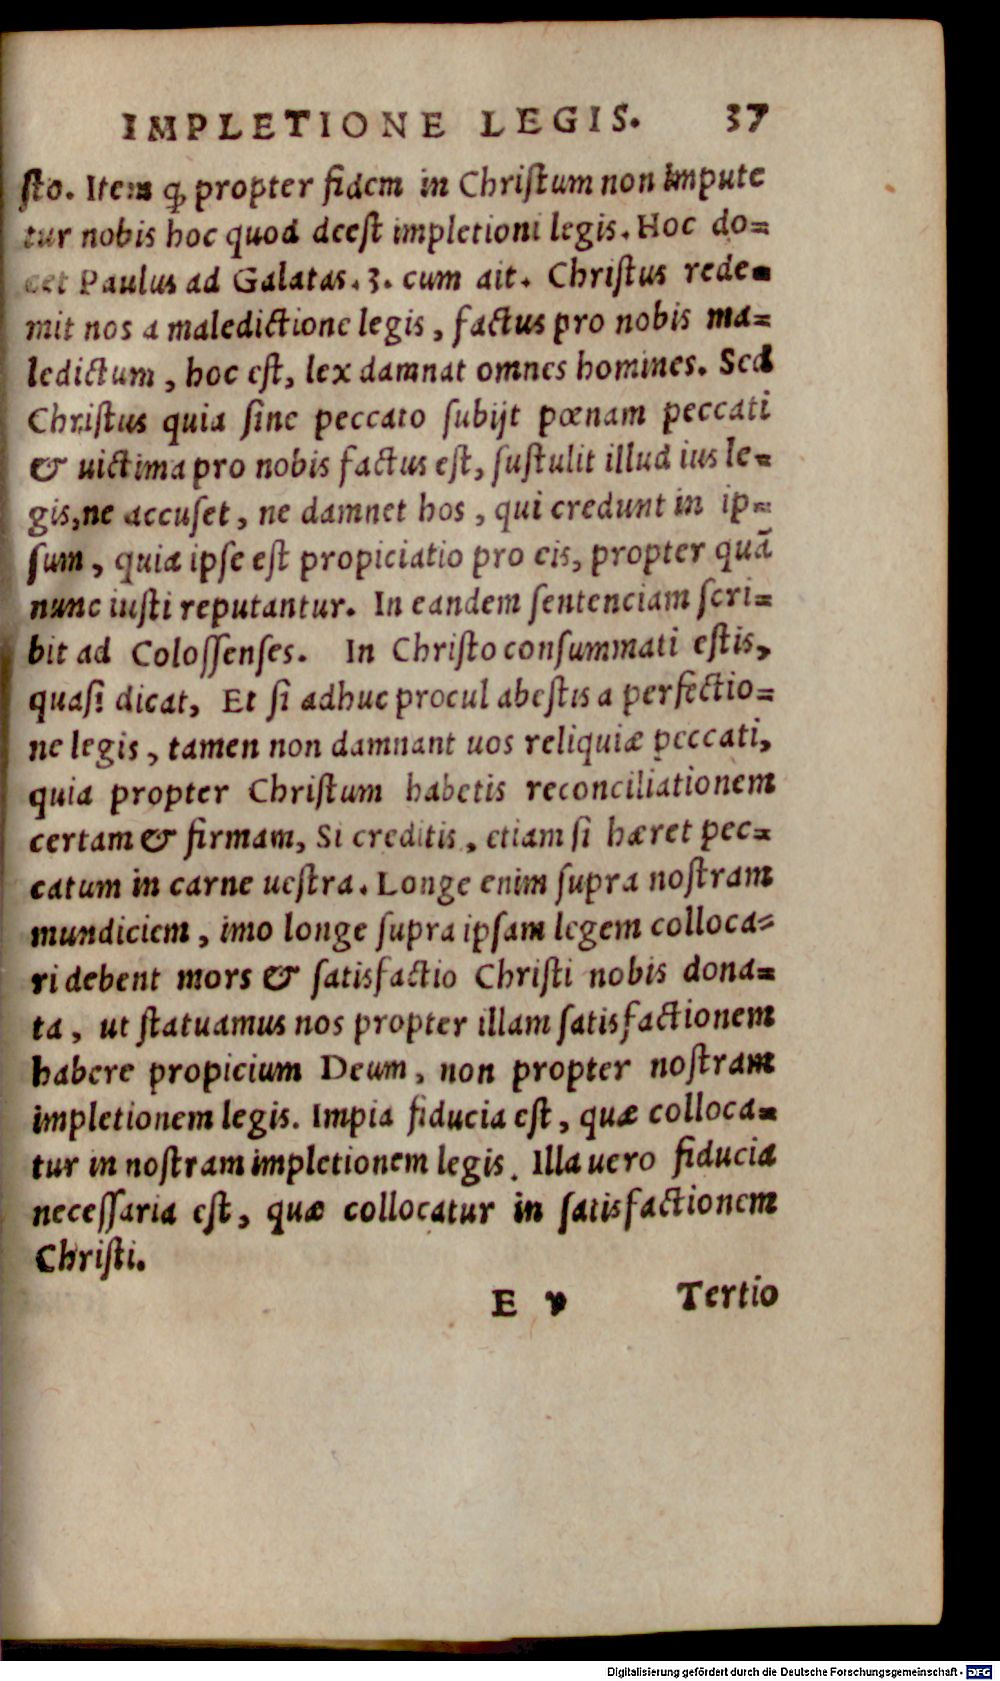 IMPLETIONE LEGIS. 37
ſto. Item ꝙ propter fidem in Chriſtum non impute
tur nobis hoc quod deeſt impletioni legis. Hoc do=
cet Paulus ad Galatas. 3. cum ait. Chriſtus rede=
mit nos a maledictione legis, factus pro nobis ma=
ledictum, hoc eſt, lex damnat omnes homines. Sed
Chriſtus quia ſine peccato ſubijt pœnam peccati
& uictima pro nobis factus eſt, ſuſtulit illud ius le=
gis, ne accuſet, ne damnet hos, qui credunt in ip=
ſum, quia ipſe eſt propiciatio pro eis, propter quã
nunc iuſti reputantur. In eandem ſentenciam ſcri=
bit ad Coloſſenſes. In Chriſto conſummati eſtis,
quaſi dicat, Et ſi adhuc procul abeſtis a perfectio=
ne legis, tamen non damnant uos reliquiæ peccati,
quia propter Chriſtum habetis reconciliationem
certam & firmam, Si creditis, etiam ſi hæret pec=
catum in carne ueſtra. Longe enim ſupra noſtram
mundiciem, imo longe ſupra ipſam legem colloca=
ri debent mors & ſatisfactio Chriſti nobis dona=
ta, ut ſtatuamus nos propter illam ſatisfactionem
habere propicium Deum, non propter noſtram
impletionem legis. Impia fiducia eſt, quæ colloca=
tur in noſtram impletionem legis. Illa uero fiducia
neceſſaria eſt, quæ collocatur in ſatisfactionem
Chriſti.
E v Tertio
Digitalisierung gefördert durch die Deutsche Forschungsgemeinschaft - DFG